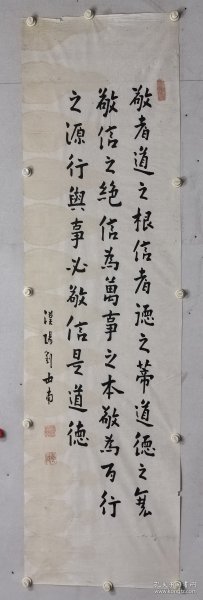 敬者道之根信者德之蒂道德之衰
敬信之絕信為萬事之本敬為百行
之源行與事必敬信是道德
漢陽劉